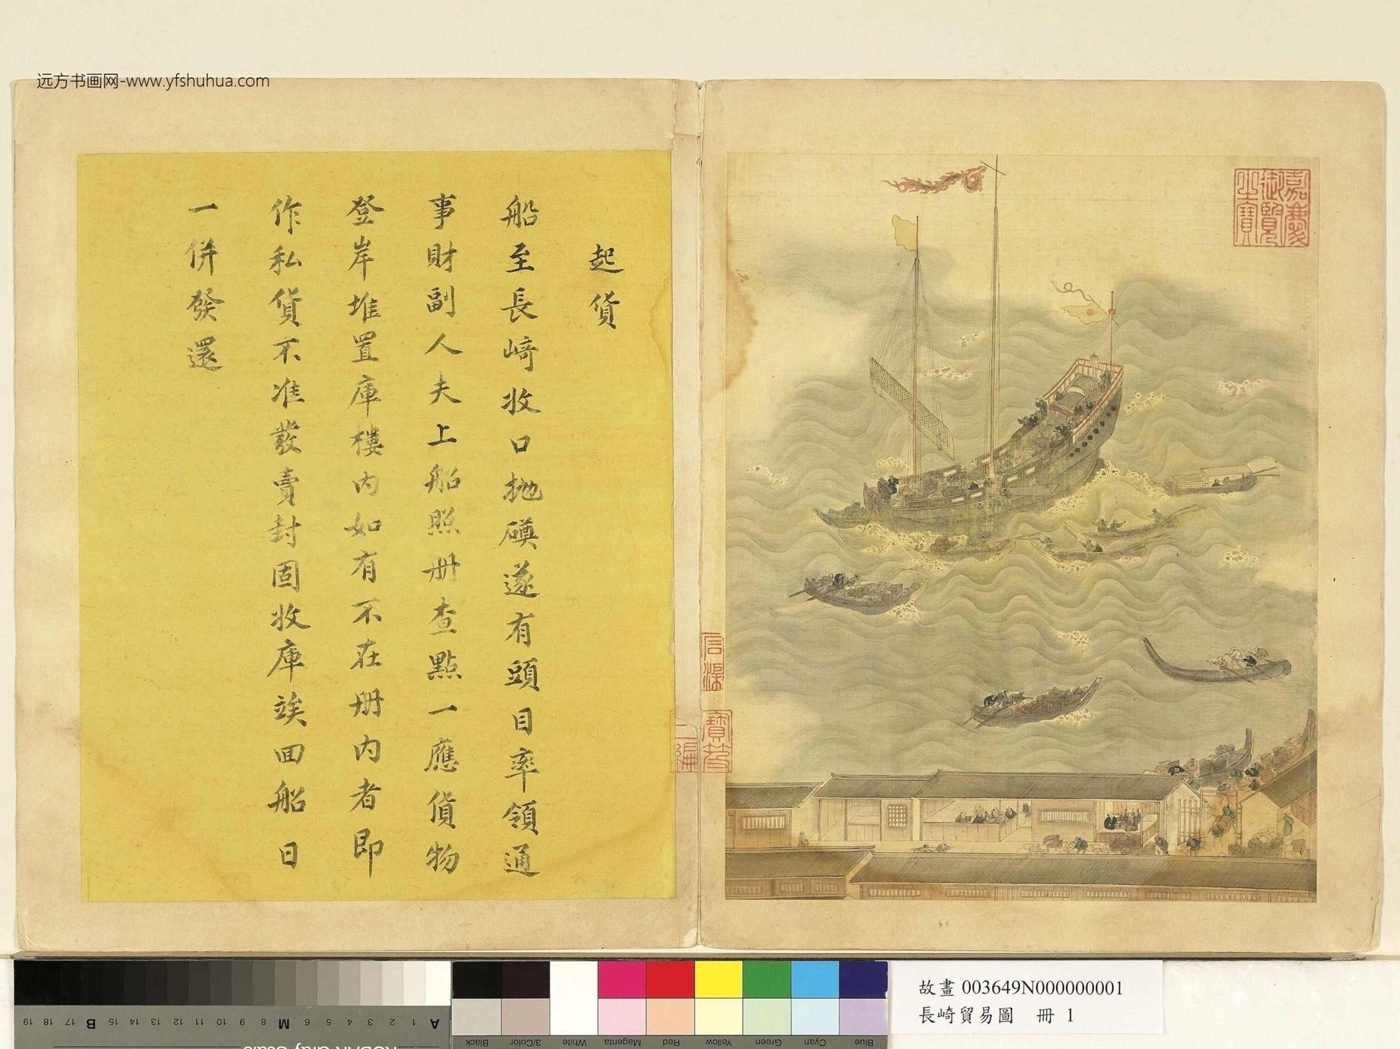 远方书画网-www.yfshuhua.com
起貨
船至長崎收口拋碤遂有頭目率領通
事財副人夫上船照册查點一應貨物
登岸堆置庫樓内如有不在册内者即
作私貨不准發賣封固收庫竢回船日
一併發還
嘉慶御覽之寶
寶笈三編
故畫 003649N000000001
長崎貿易圖 冊 1
A 1 2 3 4 5 6 M 8 9 10 11 12 13 14 15 B 17 18 19
Blue Cyan Green Yellow Red Magenta White 3/Color Black